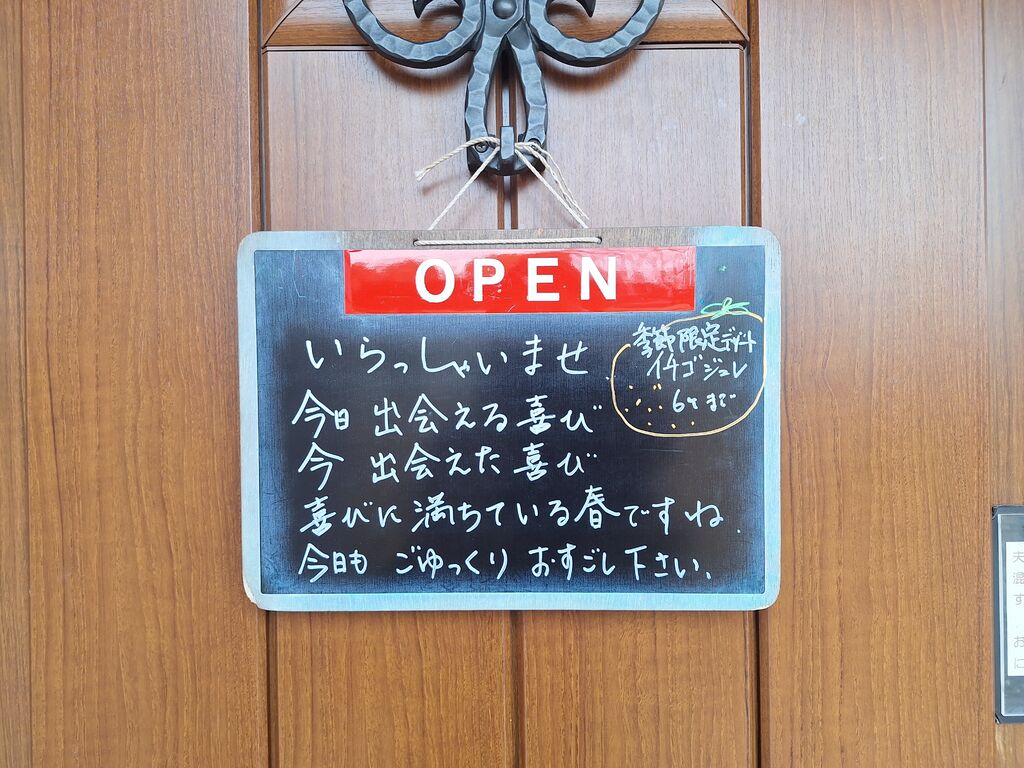 OPEN
季節限定デザート
イチゴジュレ
いらっしゃいませ
今日 出会える喜び
今 出会えた喜び
喜びに満ちている春ですね.
今日も ごゆっくり おすごし下さい.
夫
混
す
お
に